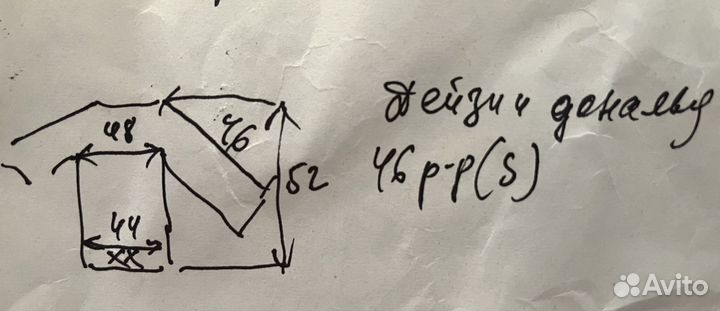 Дейзи и дональд
48
46
52
46 р-р(S)
44
хх
Avito